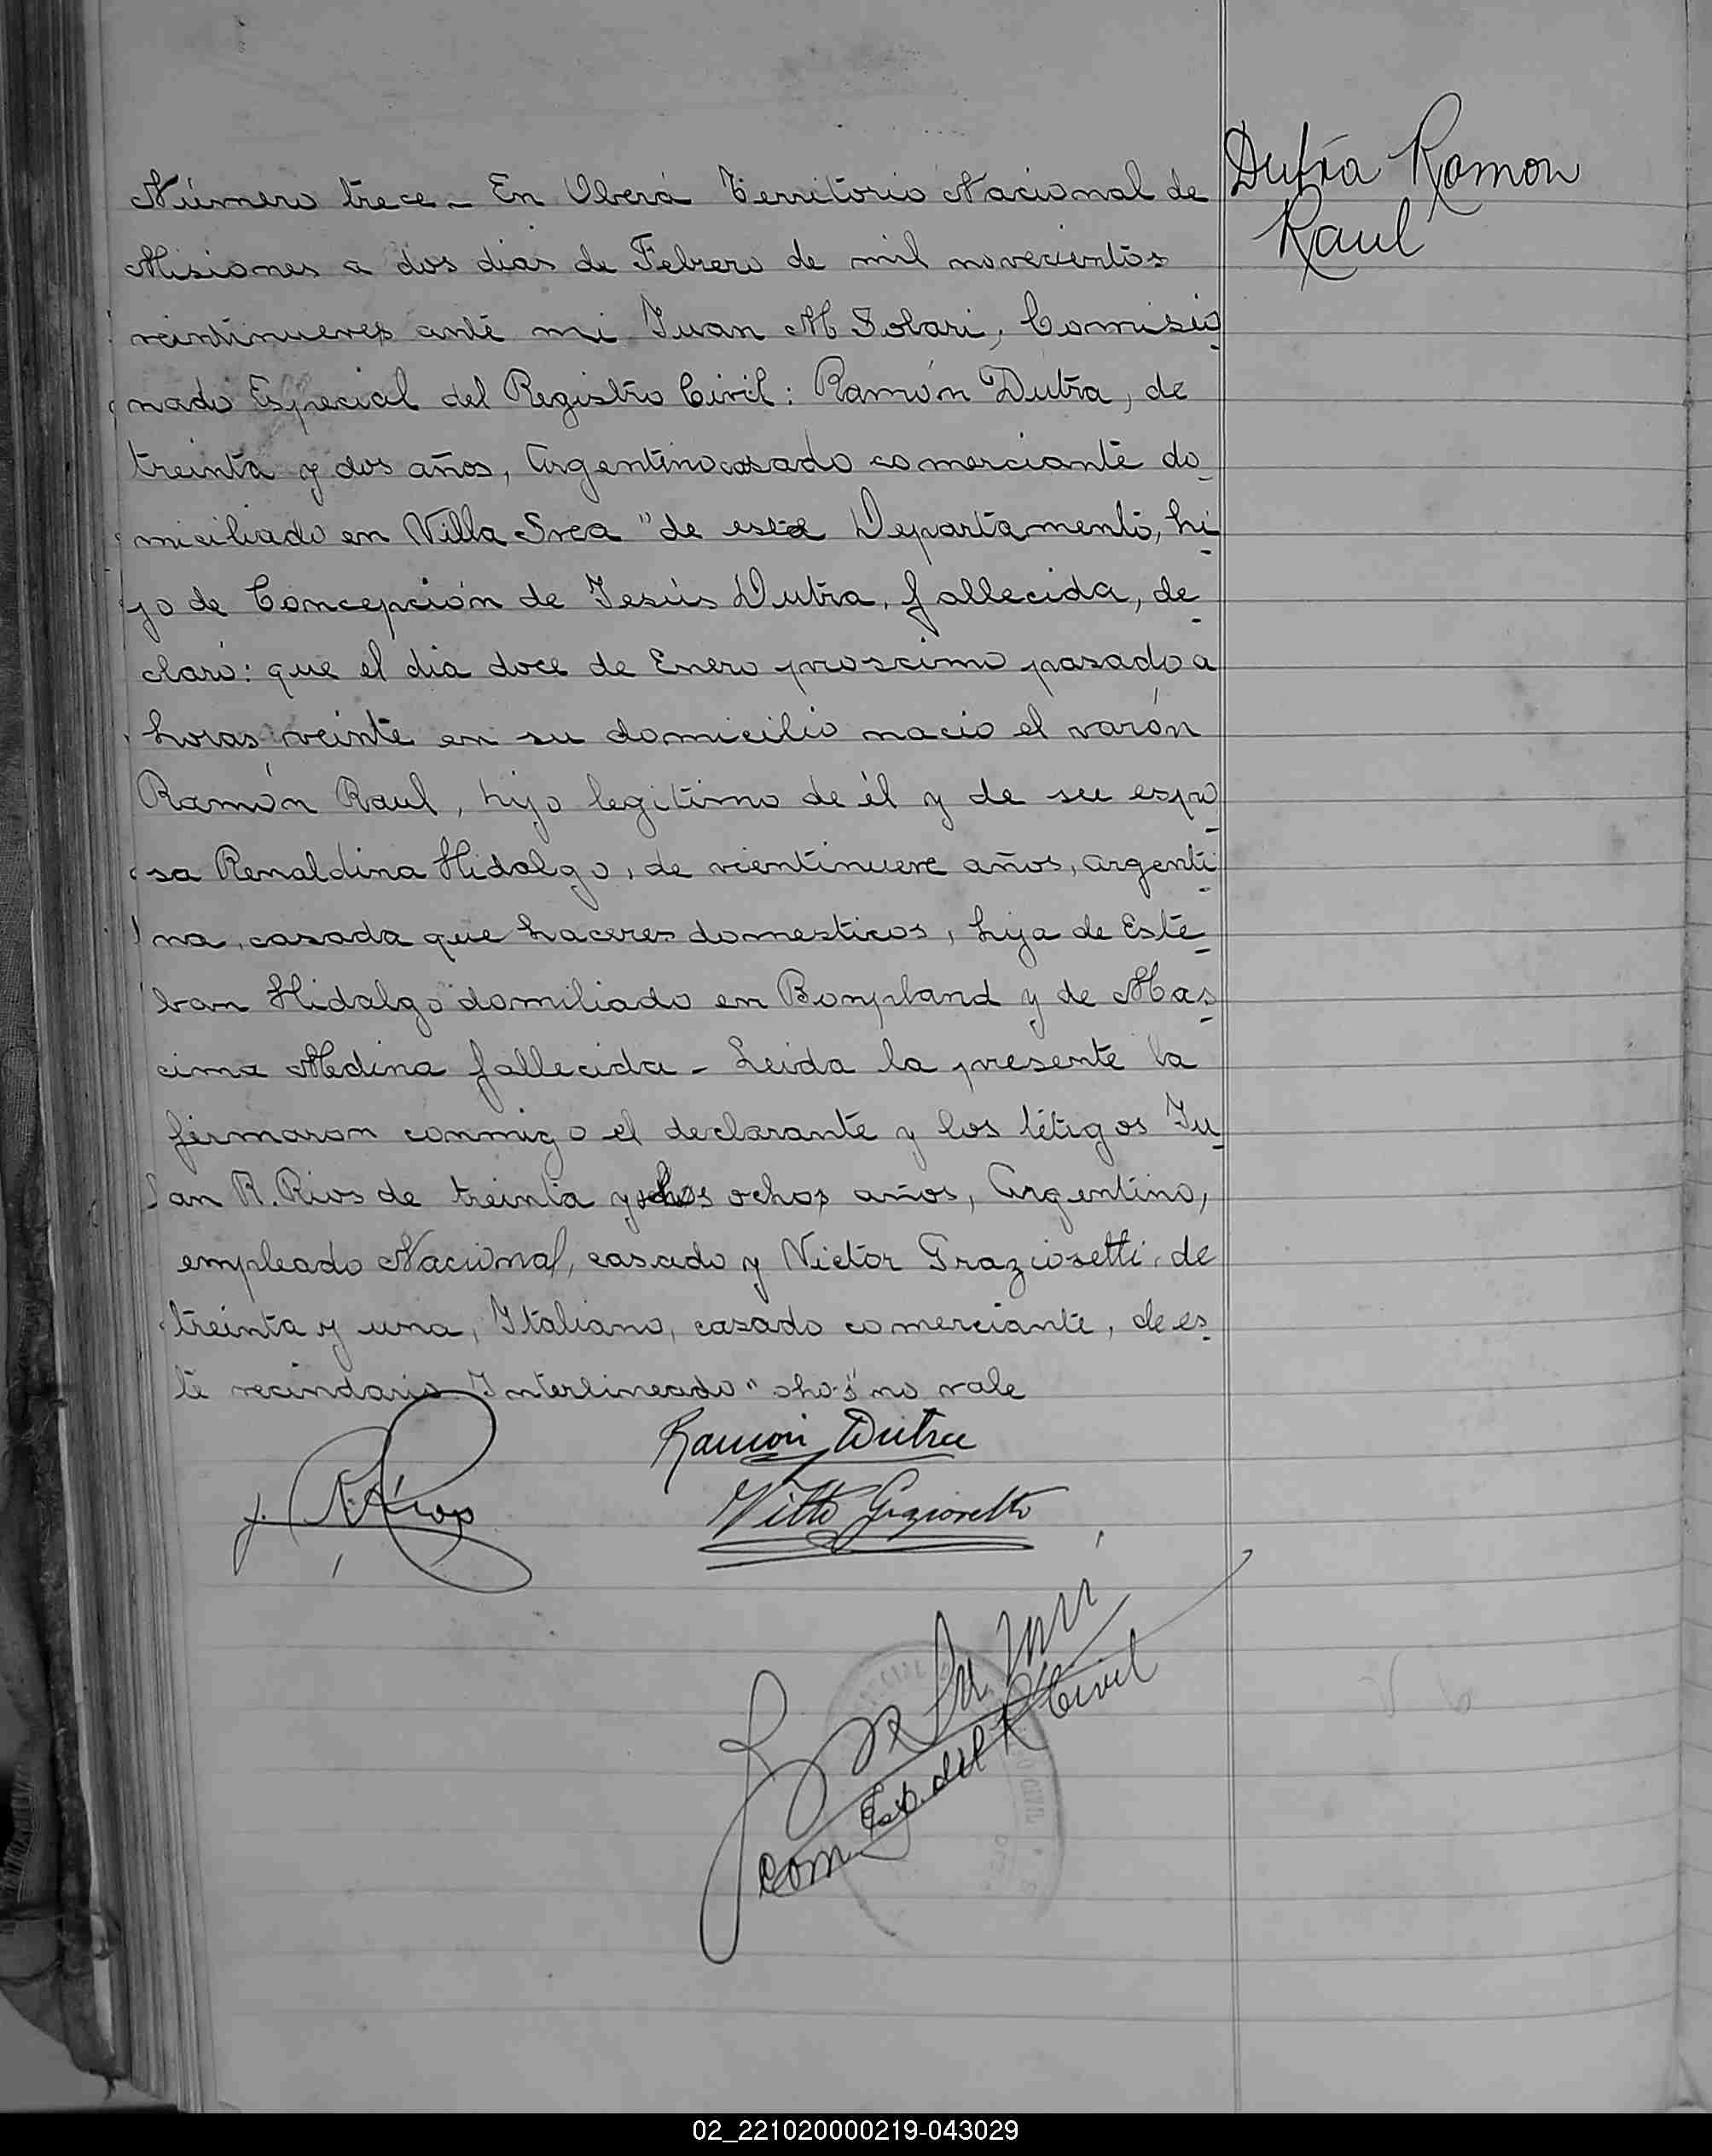 Dutra Ramon
Raul
Número trece - En Oberá Territorio Nacional de
Misiones a dos dias de Febrero de mil novecientos
veintinueves ante mi Juan M Solari, Comisio
nado Especial del Registro Civil: Ramón Dutra, de
treinta y dos años, Argentino casado comerciante do
miciliado en Villa Svea " de este Departamento, hi
jo de Concepción de Jesús Dutra, fallecida, de
claró: que el dia doce de Enero proscimo pasado a
horas veinte en su domicilio nacio el varón
Ramón Raul, hijo legitimo de él y de su espo
sa Renaldina Hidalgo, de vientinueve años, argenti
na, casada que haceres domesticos, hija de Este
ban Hidalgo domiliado en Bompland y de Mas
cima Medina fallecida - Leida la presente la
firmaron conmigo el declarante y los tétigos Ju
an R. Rios de treinta y ochos años, Argentino,
empleado Nacional, casado y Victor Graziosetti, de
treinta y una, Italiano, casado comerciante, de es
te vecindario Interlineado "ohos" no vale
Ramón Dutra
J. R. Rios
Vitto Graziosetto
Com. Esp. del R Civil
02_221020000219-043029